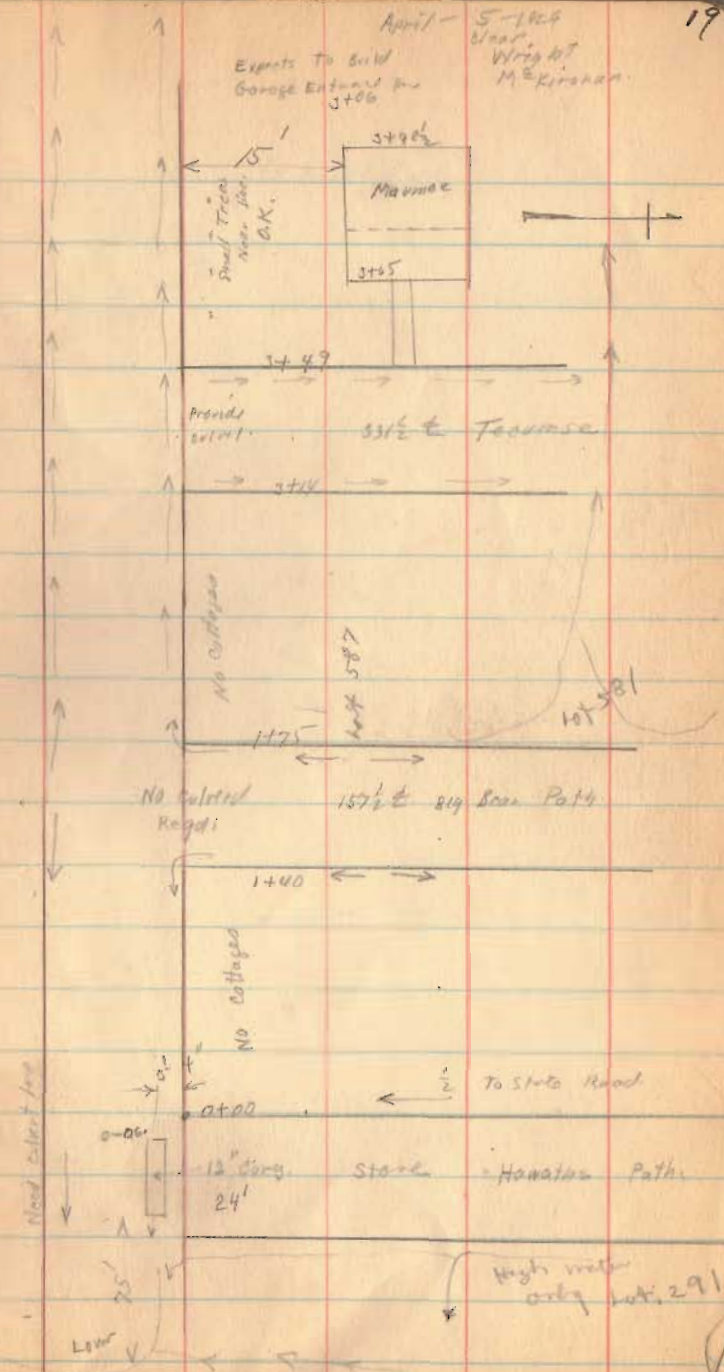 19
April - 5 -
Clear
Wright
McKirahan.
Expects To Build
Garage Entrance
3+06
15'
3+90½
Maumee
Small Trees
Near line.
O.K.
3+65
3+49
Provide
culvert.
331½ ℄ Tecumse
3+14
No Cottages
Lot 587
Lot 581
1+75
No Culvert
Reqd.
157½ ℄ 819 Bear Path
1+40
No Cottages
½ To State Road
0+00
0-06.
12" Corg.
24'
Store
Hawatha Path.
Need culvert
25'
High water
only Lot. 291
Lower